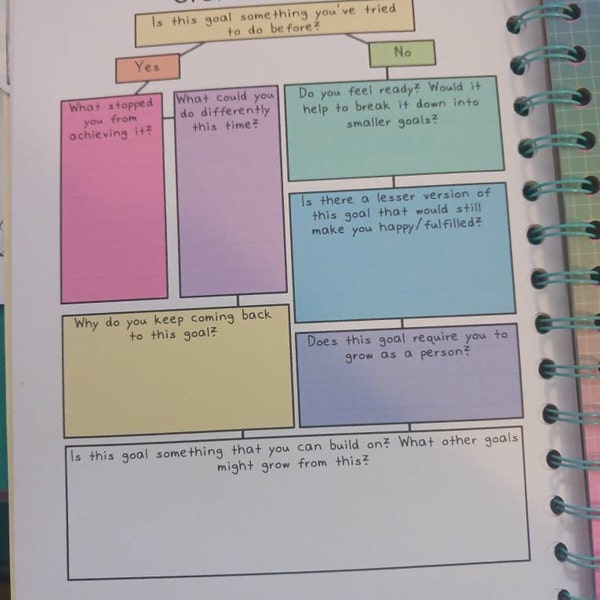 Is this goal something you've tried
to do before?
Yes
No
What stopped
you from
achieving it?
What could you
do differently
this time?
Do you feel ready? Would it
help to break it down into
smaller goals?
Is there a lesser version of
this goal that would still
make you happy/fulfilled?
Why do you keep coming back
to this goal?
Does this goal require you to
grow as a person?
Is this goal something that you can build on? What other goals
might grow from this?